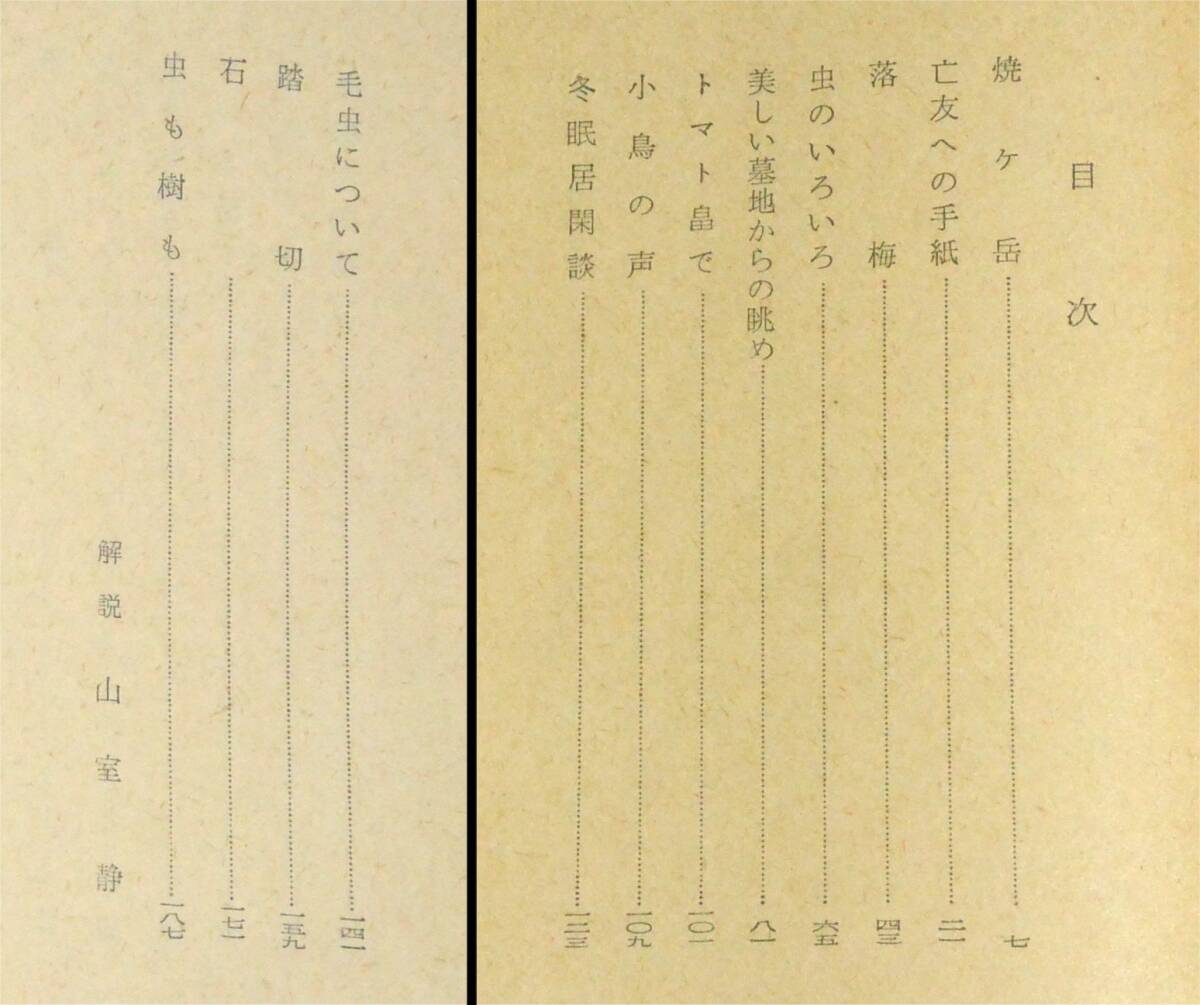 目次
焼ヶ岳……七
亡友への手紙……二一
落梅……四三
虫のいろいろ……六五
美しい墓地からの眺め……八一
トマト畠で……一〇一
小鳥の声……一〇九
冬眠居閑談……一二三
毛虫について……一四一
踏切……一五九
石……一七一
虫も樹も……一八七
解説 山室静